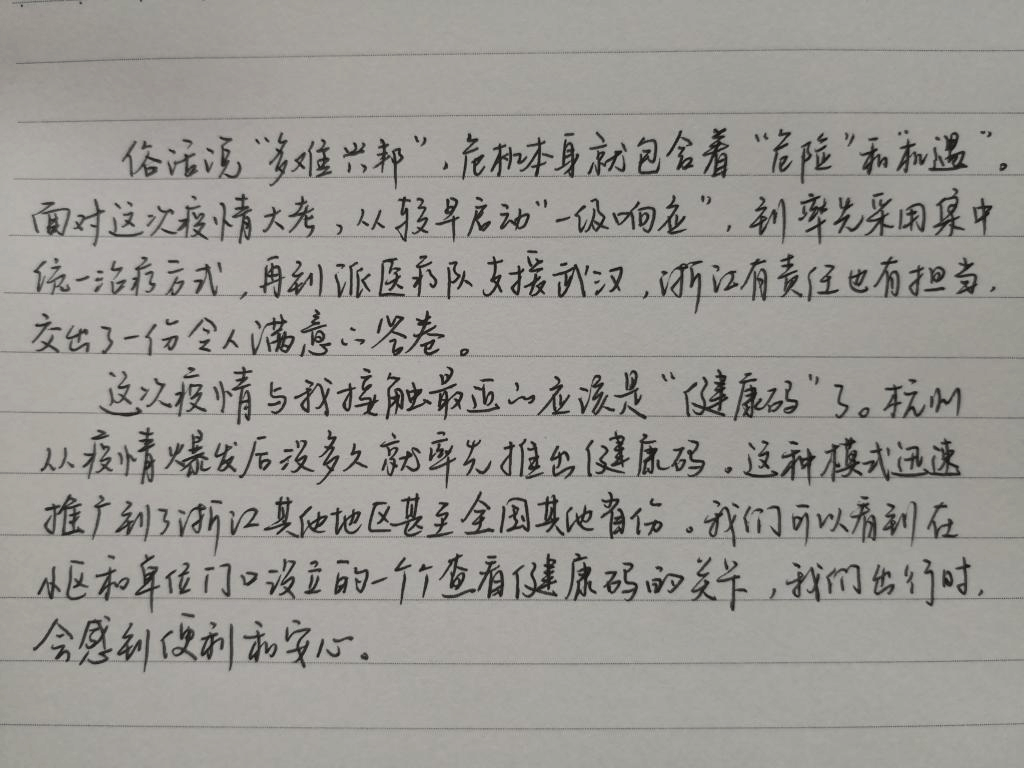 俗话说“多难兴邦”，危机本身就包含着“危险”和“机遇”。
面对这次疫情大考，从较早启动“一级响应”，到率先采用集中
统一治疗方式，再到派医疗队支援武汉，浙江有责任也有担当，
交出了一份令人满意的答卷。
这次疫情与我接触最近的应该是“健康码”了。杭州
从疫情爆发后没多久就率先推出健康码。这种模式迅速
推广到了浙江其他地区甚至全国其他省份。我们可以看到在
小区和单位门口设立的一个个查看健康码的关卡，我们出行时，
会感到便利和安心。